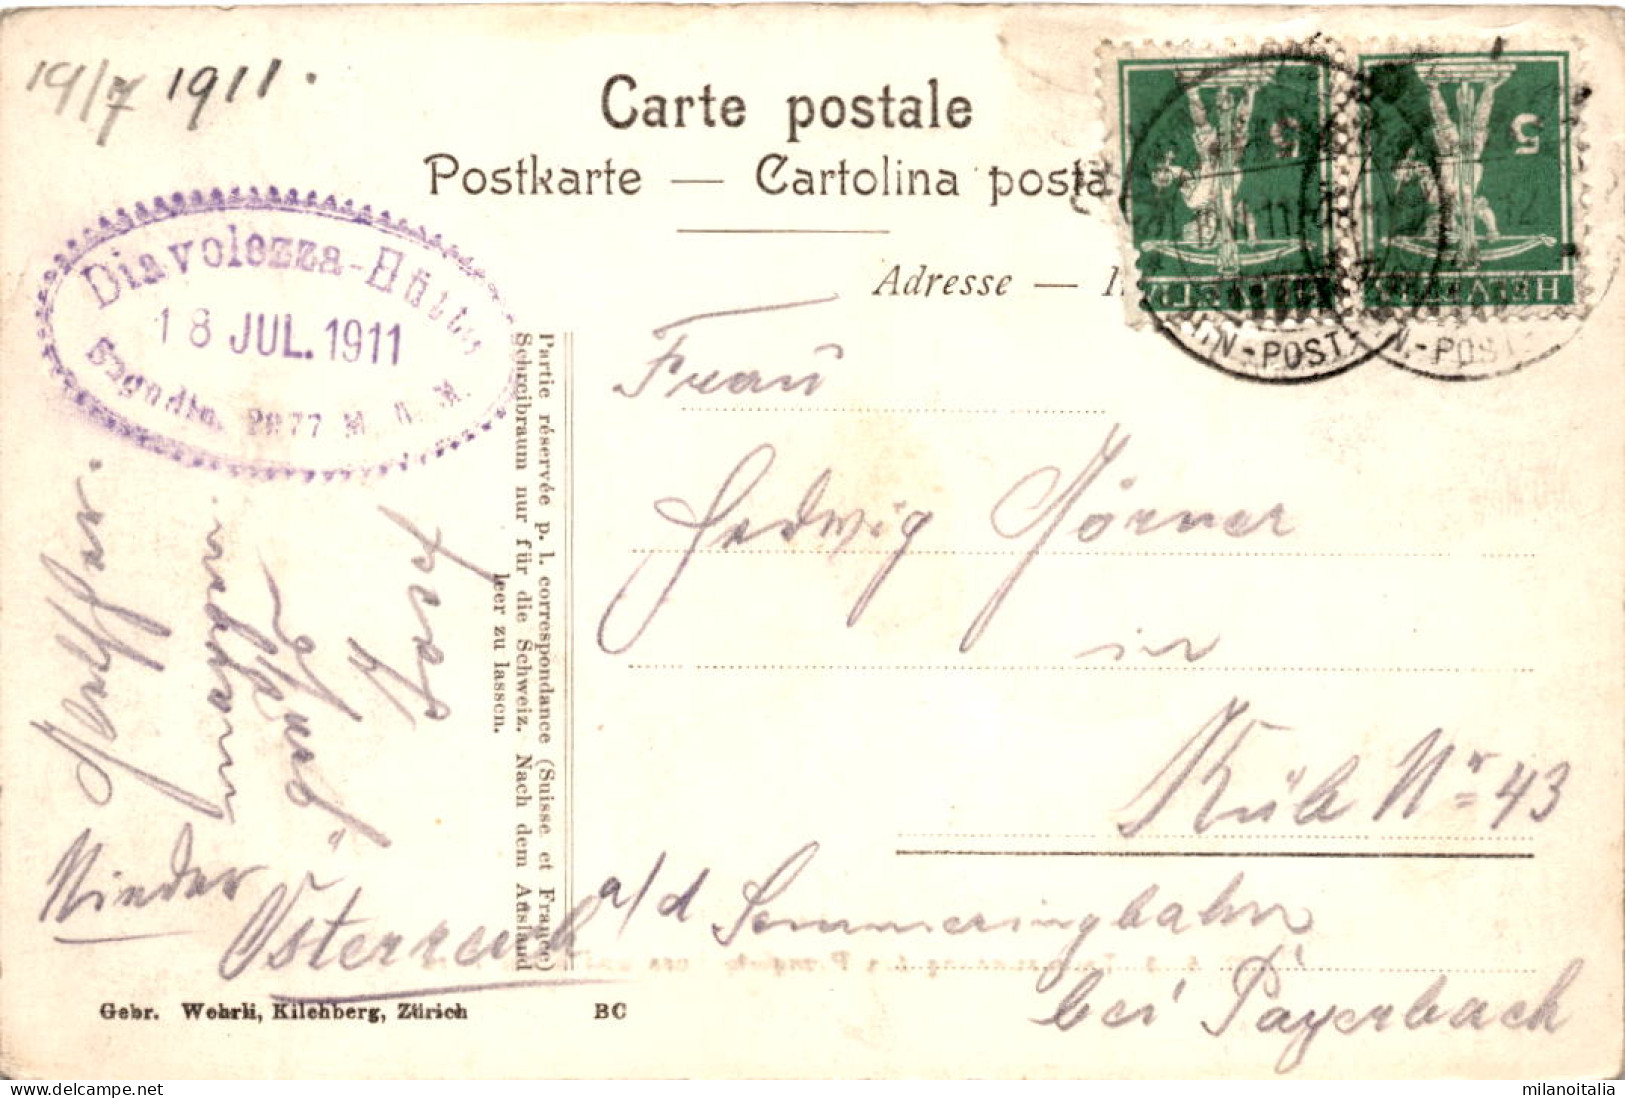 19/7 1911.
Carte postale
Postkarte — Cartolina posta
Adresse —
Diavolezza-Hütte
18 JUL. 1911
Engadin. 2977 M. ü. M.
5
5
HELVETIA
HELVETIA
N.-POST
N.-POST
Partie réservée p. l. correspondance (Suisse et France)
Schreibraum nur für die Schweiz. Nach dem Ausland
leer zu lassen.
Frau
Hedwig Körner
in
Küb Nr 43
a/d Semmeringbahn
bei Payerbach
Nieder
Österreich
Gebr. Wehrli, Kilchberg, Zürich
BC
milanoitalia
www.delcampe.net